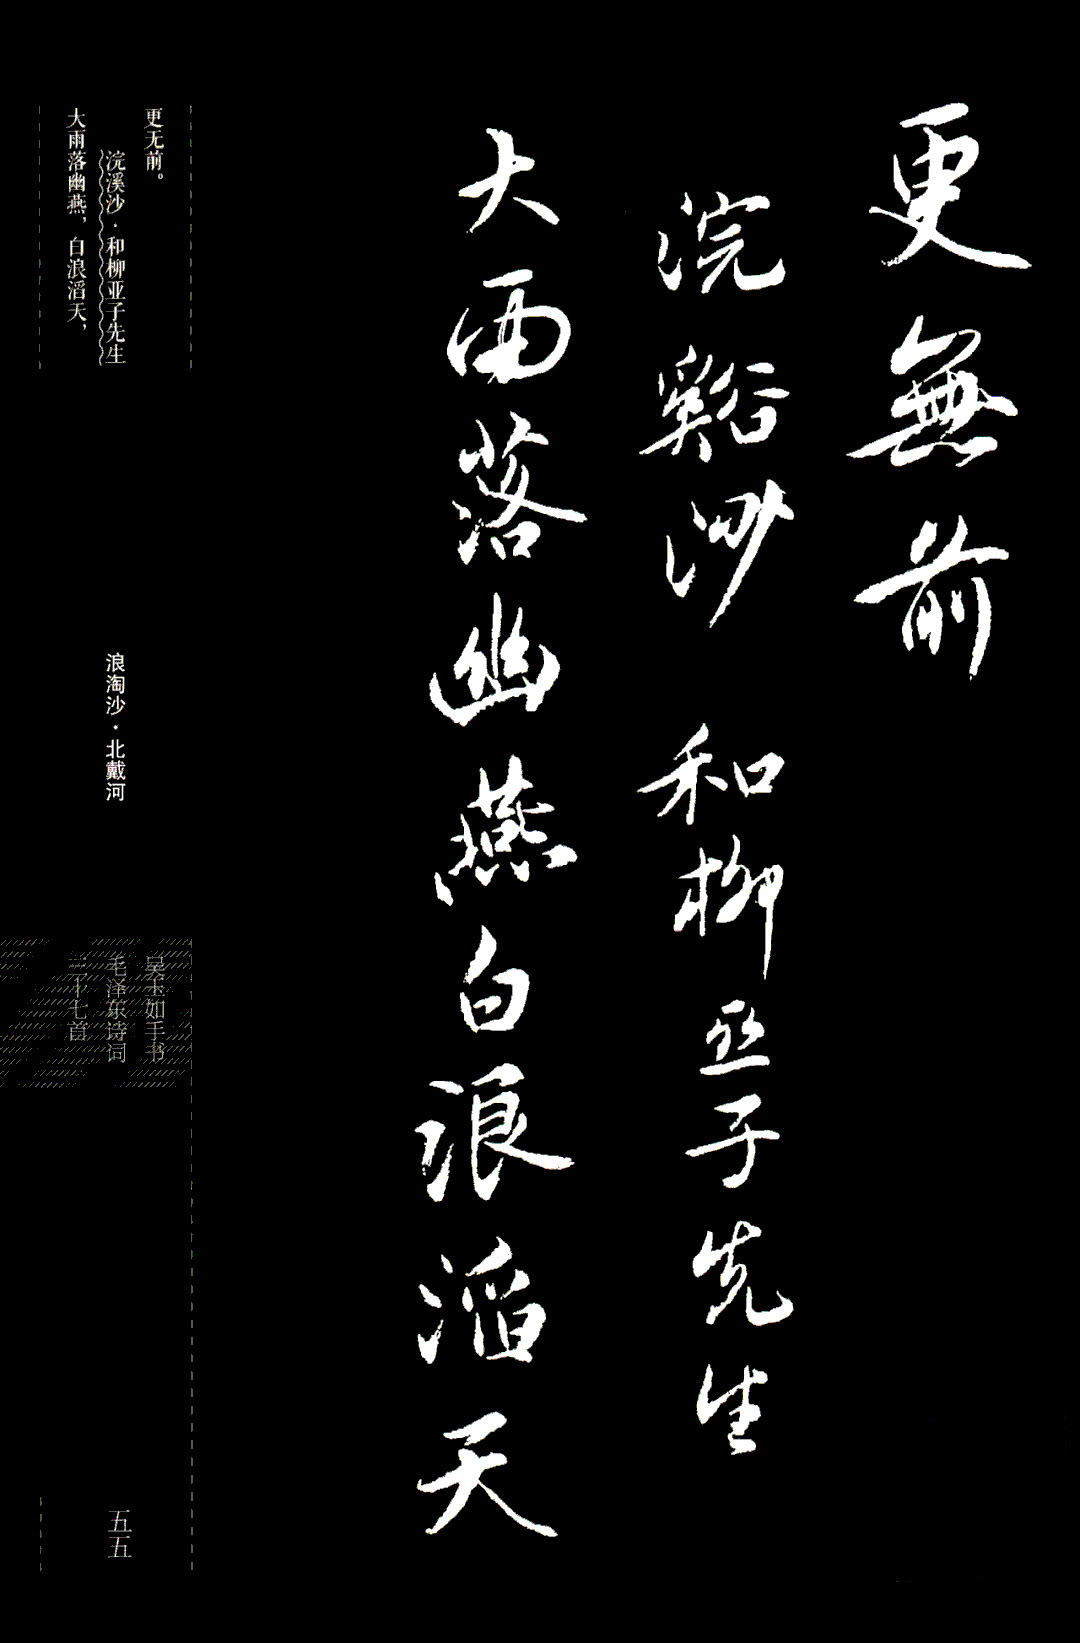 更無前
浣谿沙 和柳亞子先生
大雨落幽燕白浪滔天
更无前。
浣溪沙·和柳亚子先生
大雨落幽燕，白浪滔天，
浪淘沙·北戴河
吴玉如手书
毛泽东诗词
三十七首
五五